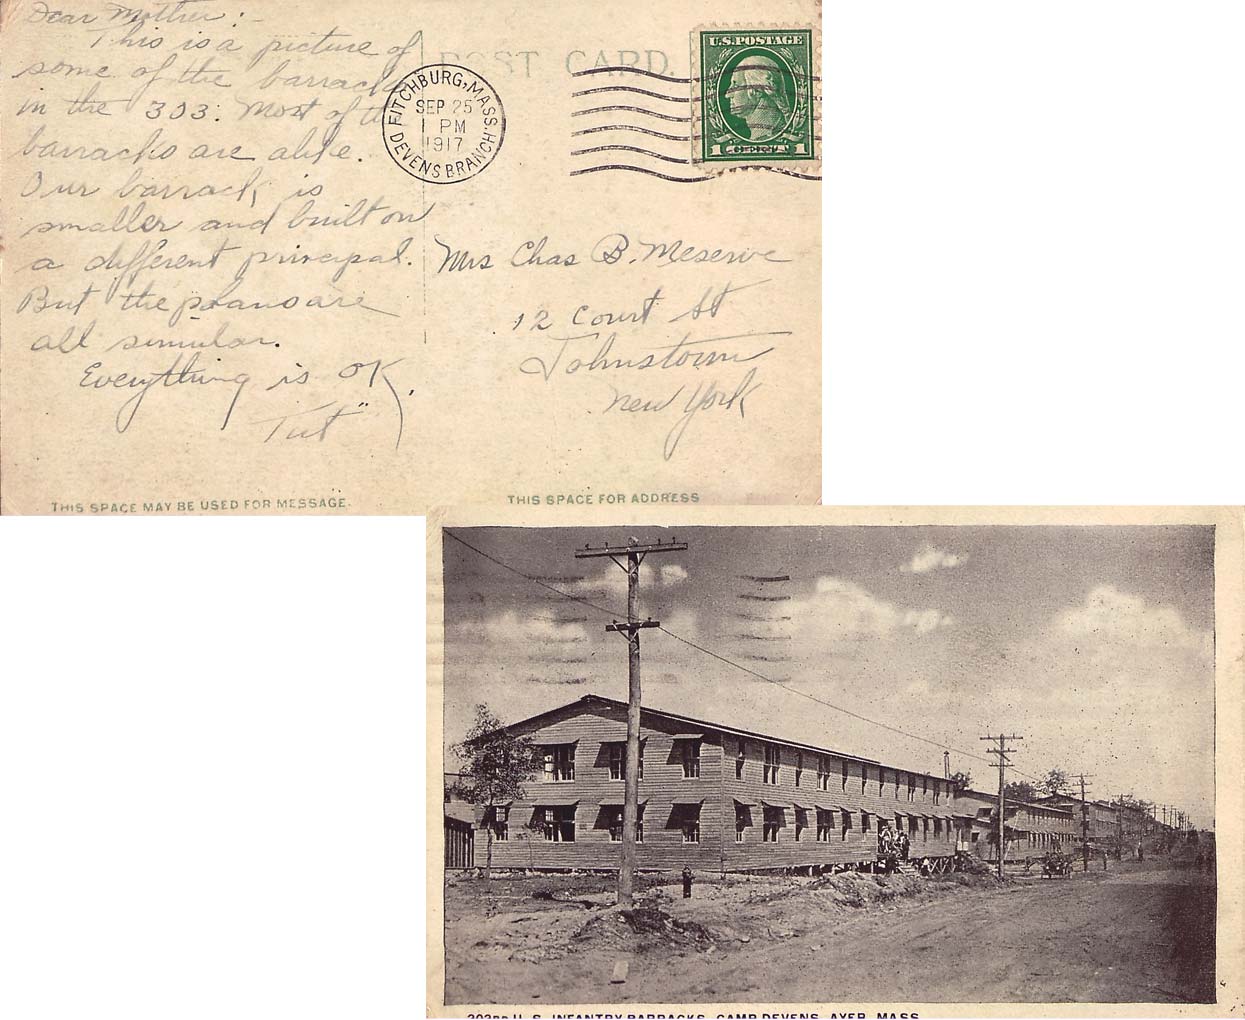 Dear Mother:-
This is a picture of
some of the barracks
in the 303. Most of the
barracks are alike.
Our barrack is
smaller and built on
a different principal.
But the plans are
all simular.
Everything is OK,
Tut"
THIS SPACE MAY BE USED FOR MESSAGE.
POST CARD
FITCHBURG, MASS.
SEP 25
1 PM
1917
DEVENS BRANCH.
U.S. POSTAGE
1 1
Mrs Chas B. Meserve
12 Court St
Johnstown
New York
THIS SPACE FOR ADDRESS
303RD U. S. INFANTRY BARRACKS, CAMP DEVENS, AYER, MASS.